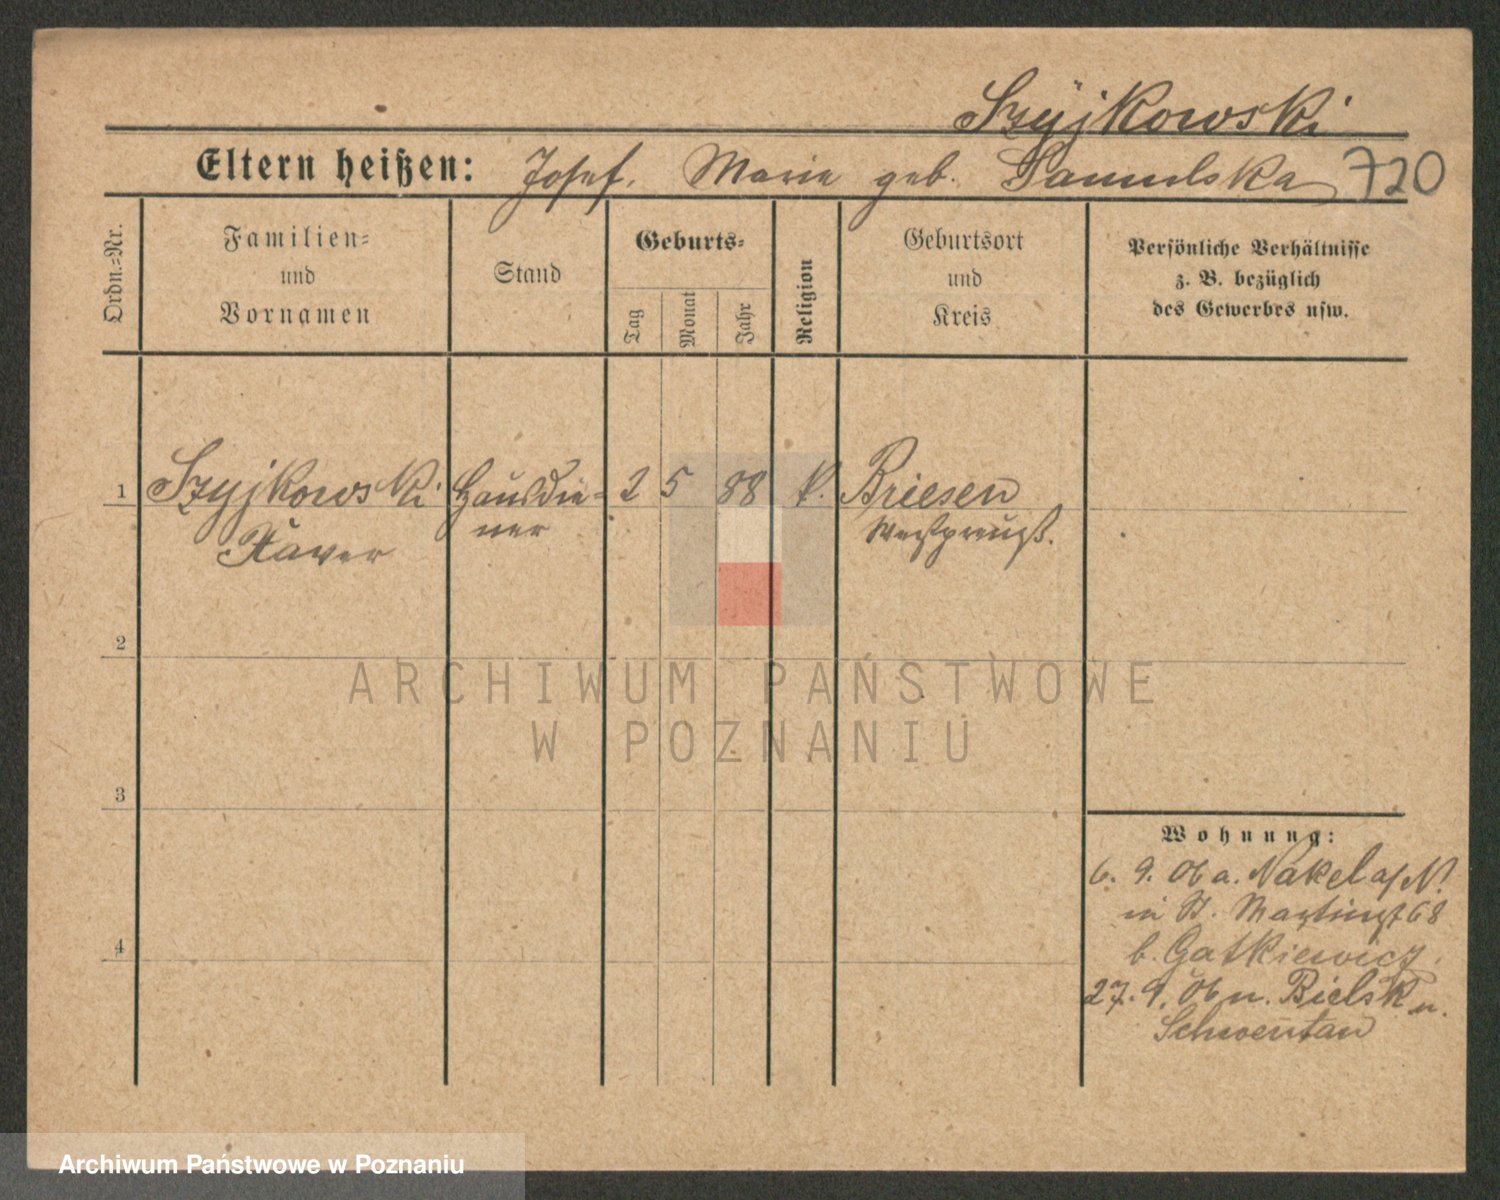 Szyjkowski
Eltern heißen: Josef. Marie geb. Samulska 720
Ordn.=Nr.
Familien=
und
Vornamen
Stand
Geburts=
Tag
Monat
Jahr
Religion
Geburtsort
und
Kreis
Persönliche Verhältnisse
z. B. bezüglich
des Gewerbes usw.
1 Szyjkowski Hausdie= 2 5 88 k. Briesen
Xaver ner Westpreuß.
2
ARCHIWUM PAŃSTWOWE
W POZNANIU
3
Wohnung:
6. 9. 06 a. Nakel a/N.
in St. Martinst 68
b. Gatkiewicz.
27. 9. 06 n. Bielsk n.
Schwentau
4
Archiwum Państwowe w Poznaniu